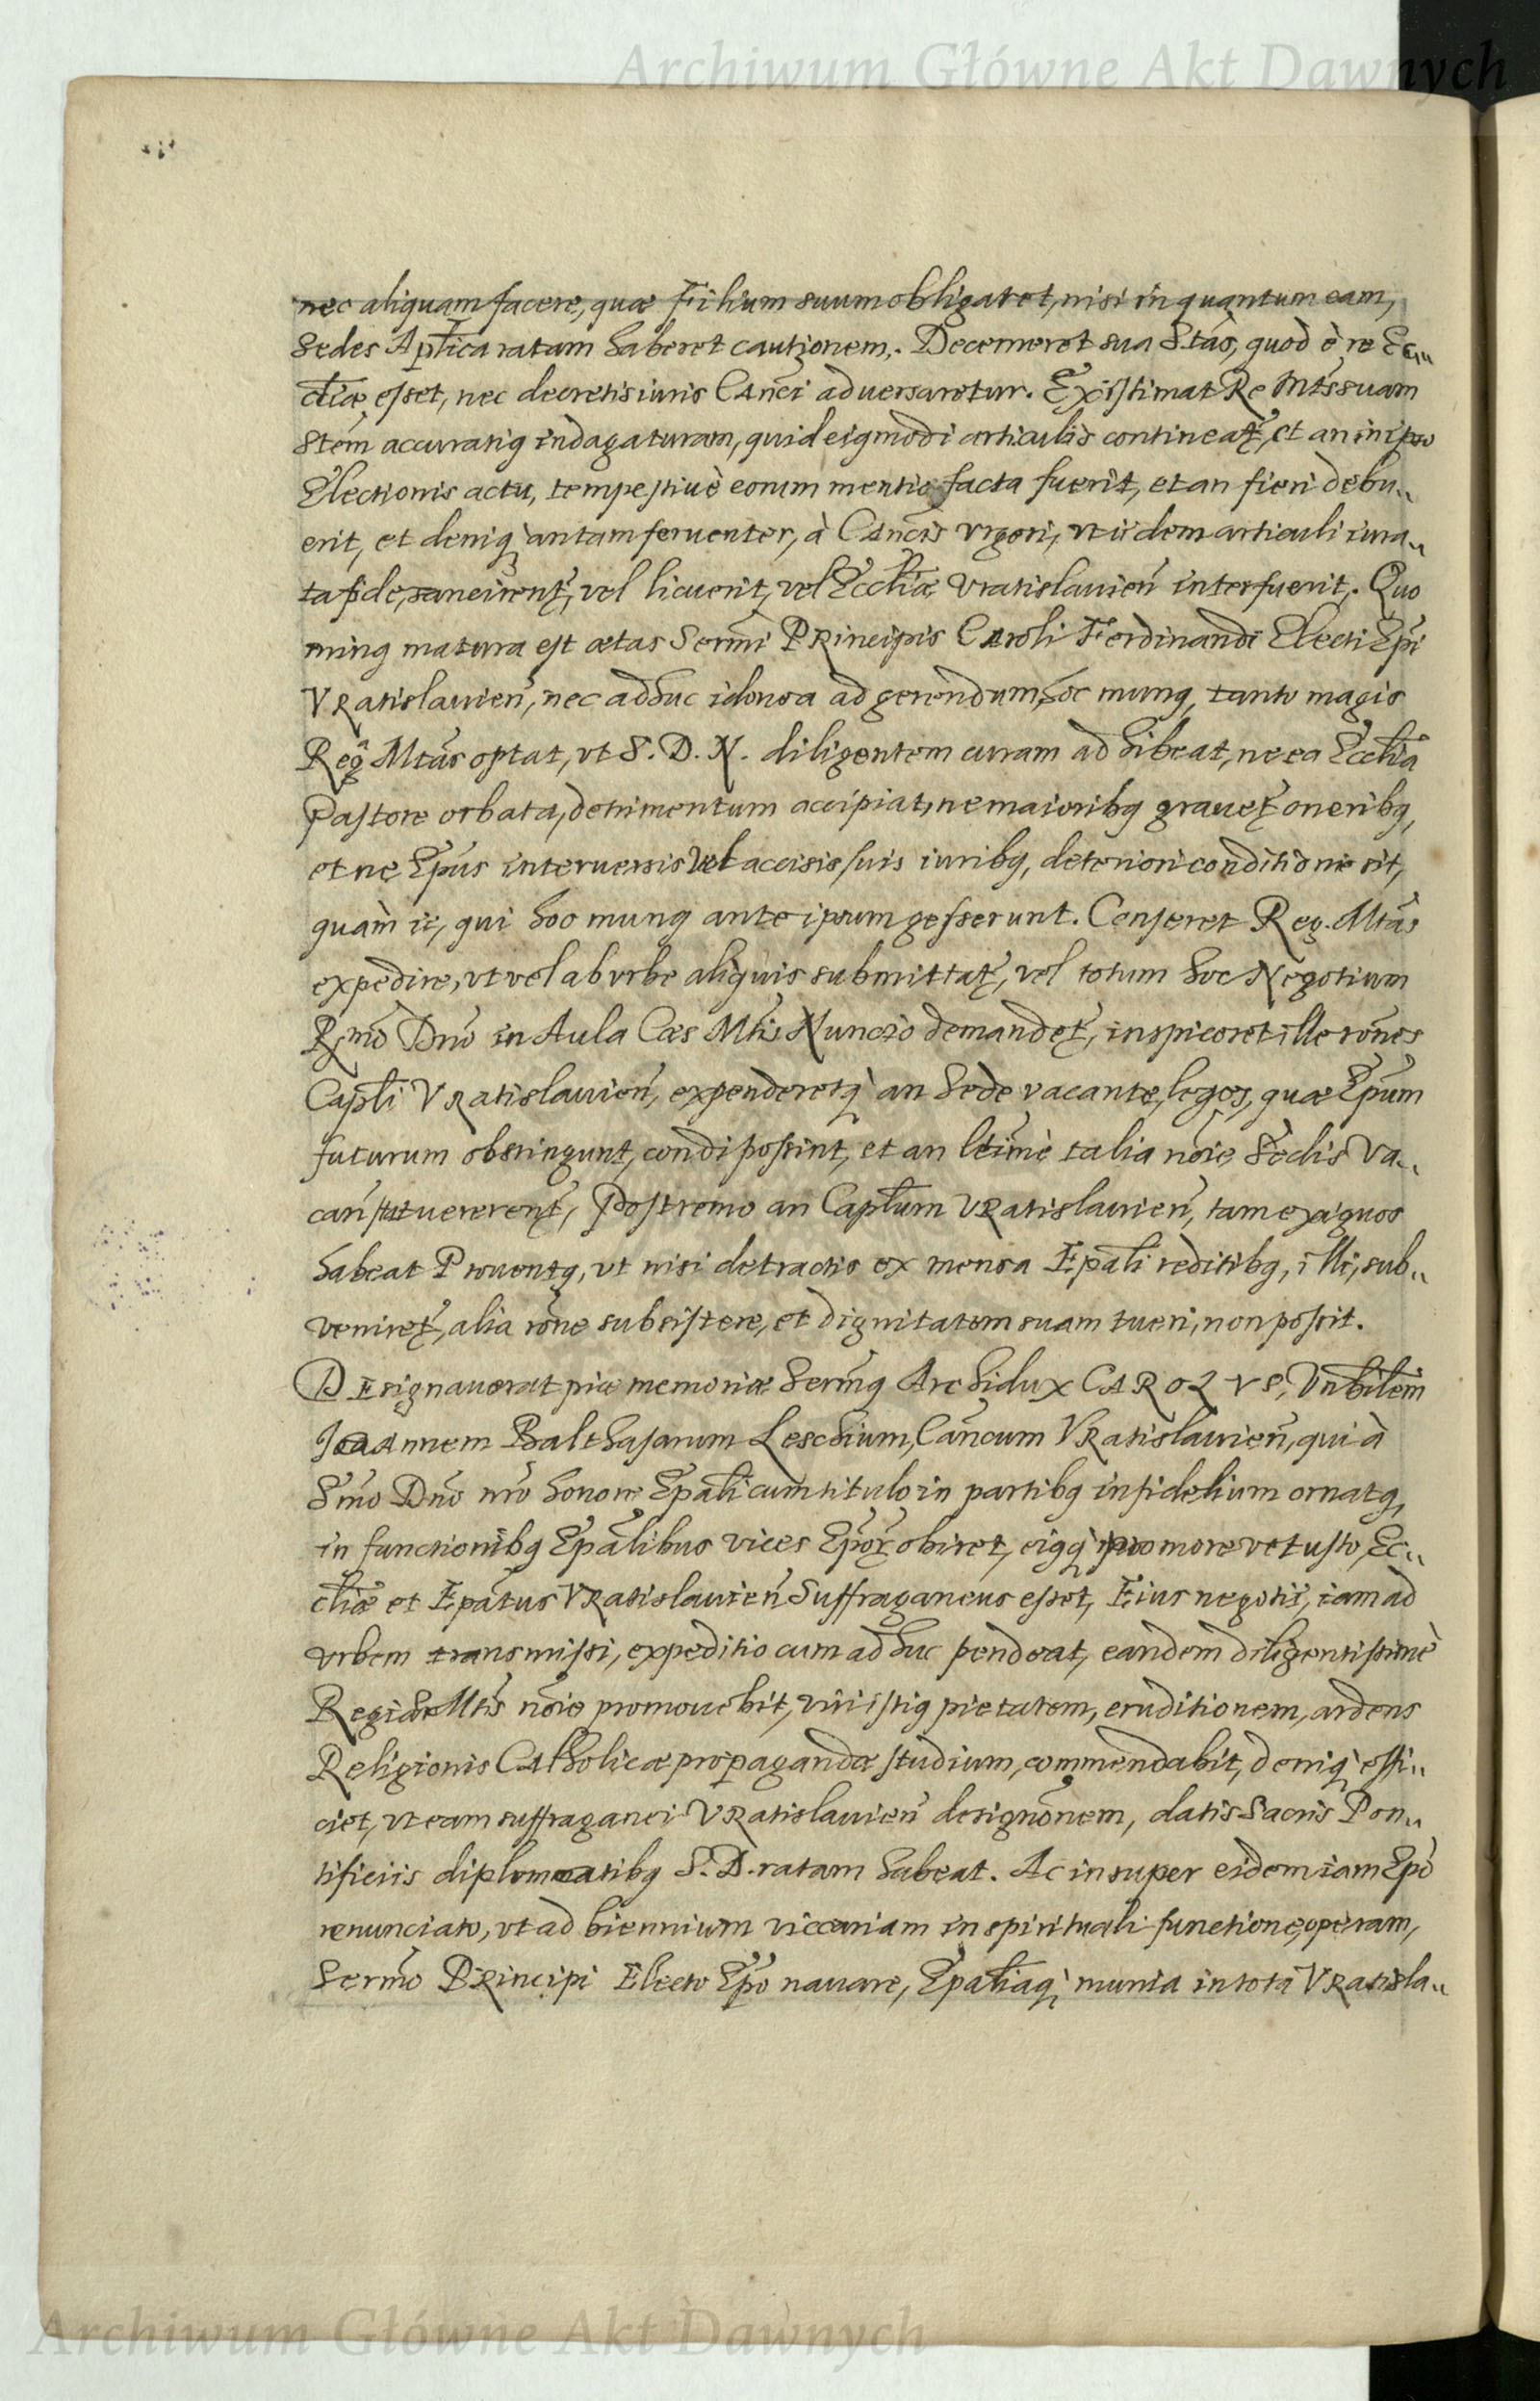 Archiwum Główne Akt Dawnych
nec aliquam facere, quæ Filium suum obligaret, nisi in quantum eam,
Sedes Aplica ratam haberet cautionem. Decerneret sua Stas, quod è re Ec„
cliæ esset, nec decretis iuris Canci adversaretur. Existimat Re Mtas suam
Stem accuratiq indagaturam, quid eiqmodi articulis contineat, et an in ipso
Electionis actu, tempestivè eorum mentio facta fuerit, et an fieri debu„
erit, et deniq an tam ferventer, à Cancis urgeri, ut iidem articuli iura„
ta fide, sancirent, vel licuerit, vel Eccliæ Vratislavien interfuerit. Quo
minq matura est ætas Sermi PRincipis Caroli Ferdinandi Electi Epi
VRatislavien, nec adhuc idonea ad gerendum hoc munq, tanto magis
Rega Mtas optat, ut S. D. N. diligentem curam adhibeat, ne ea Ecclia
Pastore orbata, detrimentum accipiat, ne maioribq gravet oneribq,
et ne Epus interversis vel accisis suis iuribq, deteriori conditione sit,
quàm ii, qui hoc munq ante ipsum gesserunt. Censeret Reg. Mtas
expedire, ut vel ab urbe aliquis submittat, vel totum hoc Negotium
Rmo Dno in Aula Cæs Mtis Nuncio demandet, inspiceret ille rones
Capli VRatislavien, expenderetq an Sede vacante, leges, quæ Epum
futurum obstringunt, condi possint, et an ltimè talia noie Sedis va„
can statuererent, Postremo an Caplum VRatislavien, tam exiguos
habeat Proventq, ut nisi detractis ex mensa Epali reditibq, illi, sub„
veniret, alia rone subsistere, et dignitatem suam tueri, non possit.
DEsignaverat piæ memoriæ Sermq Archidux CAROLVS, Vnbilem
Joannem Balthasarum Leschium, Cancum VRatislavien, qui à
Smo Dno nro honore Epali cum titulo in partibq infidelium ornatq,
in functionibq Epalibus vices Epor obiret, eiqq pro more vetusto, Ec„
cliæ et Epatus VRatislavien Suffraganeus esset, Eius negotii, iam ad
urbem transmissi, expeditio cum adhuc pendeat, eandem diligentissimè
Regiæ Mtis noie promovebit, viri istiq pietatem, eruditionem, ardens
Religionis Catholicæ propagandæ studium, commendabit, deniq effi„
ciet, ut eam suffraganei VRatislavien designonem, datis Sacris Pon„
tificiis diplomatibq S. D. ratam habeat. Ac insuper eidem iam Epo
renunciato, ut ad biennium vicariam in spirituali functione, operam,
Sermo PRincipi Electo Epo navare, Epaliaq munia in tota VRatisla„
Archiwum Główne Akt Dawnych